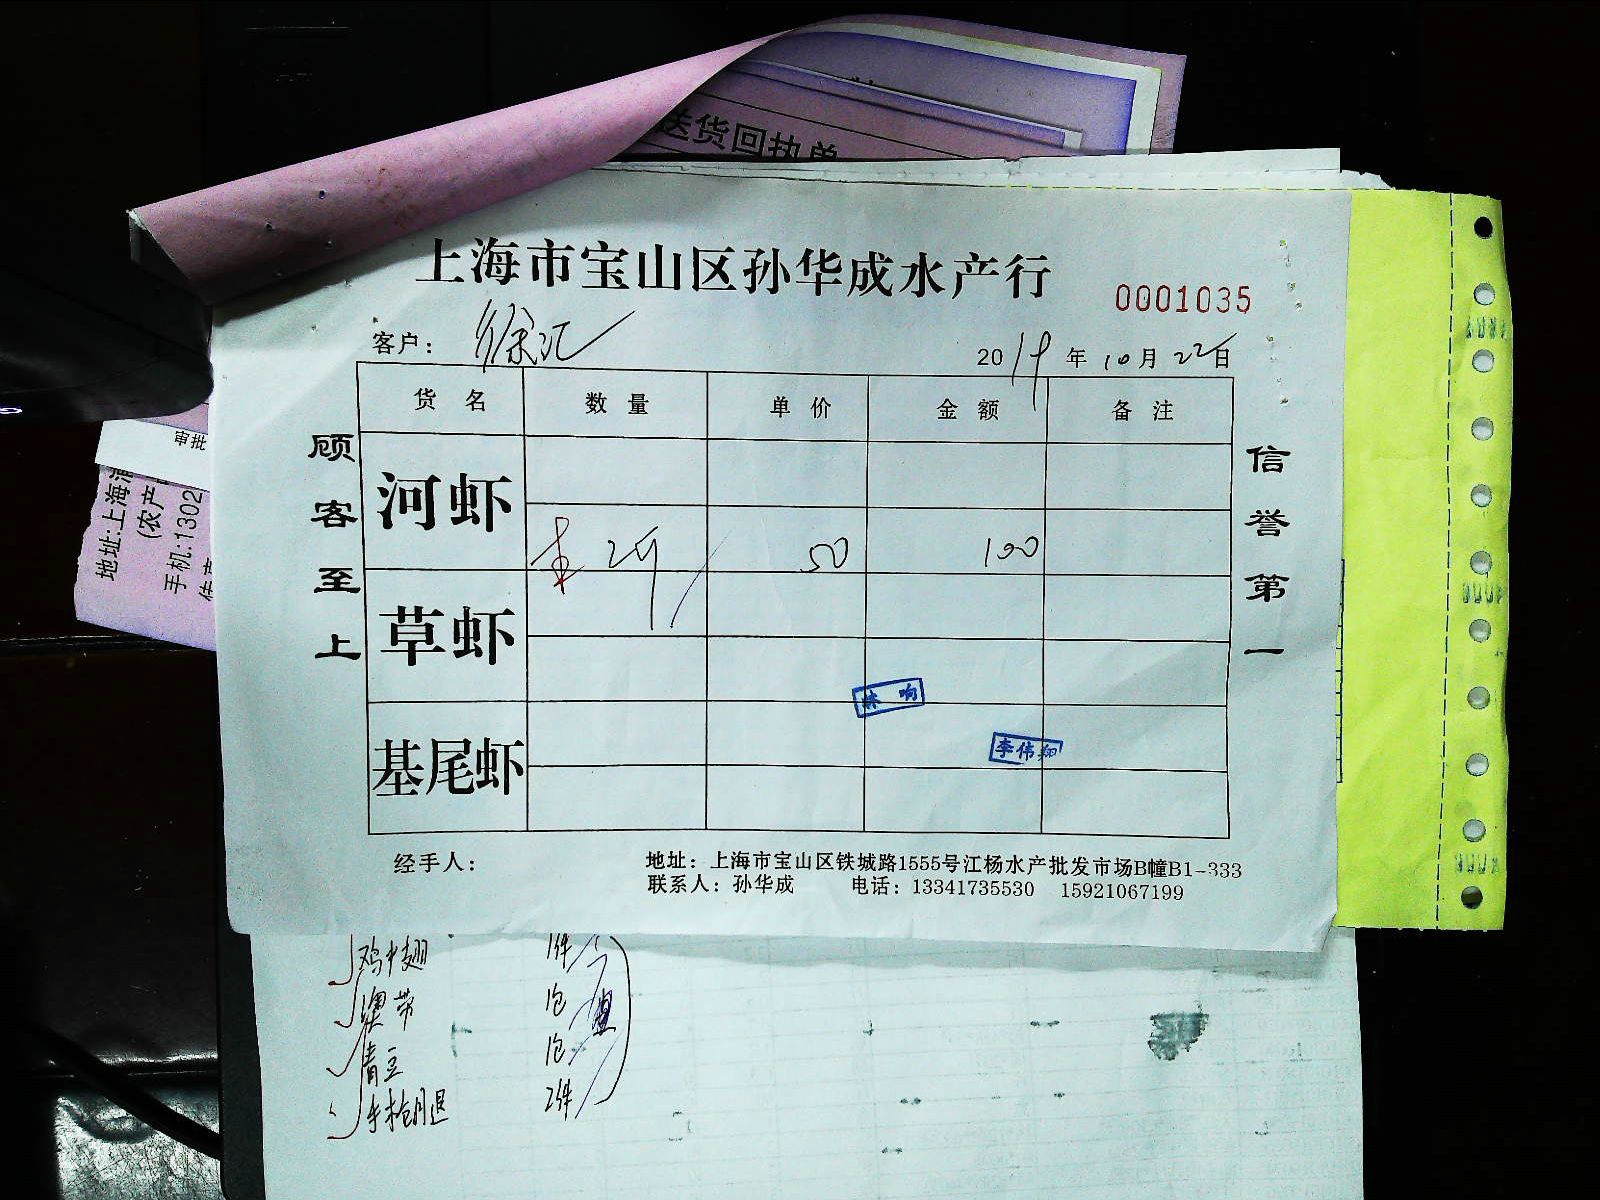 送货回执单
上海市宝山区孙华成水产行
0001035
客户： 徐汇
2019年10月22日
货名 数量 单价 金额 备注
河虾
2斤 50 100
草虾
基尾虾
顾客至上
信誉第一
李伟翔
经手人：
地址：上海市宝山区铁城路1555号江杨水产批发市场B幢B1-333
联系人：孙华成 电话：13341735530 15921067199
审批
地址:上海浦
(农产
手机:1302
鸡中翅 1件
澳带 1包
青豆 1包
手枪腿 2件